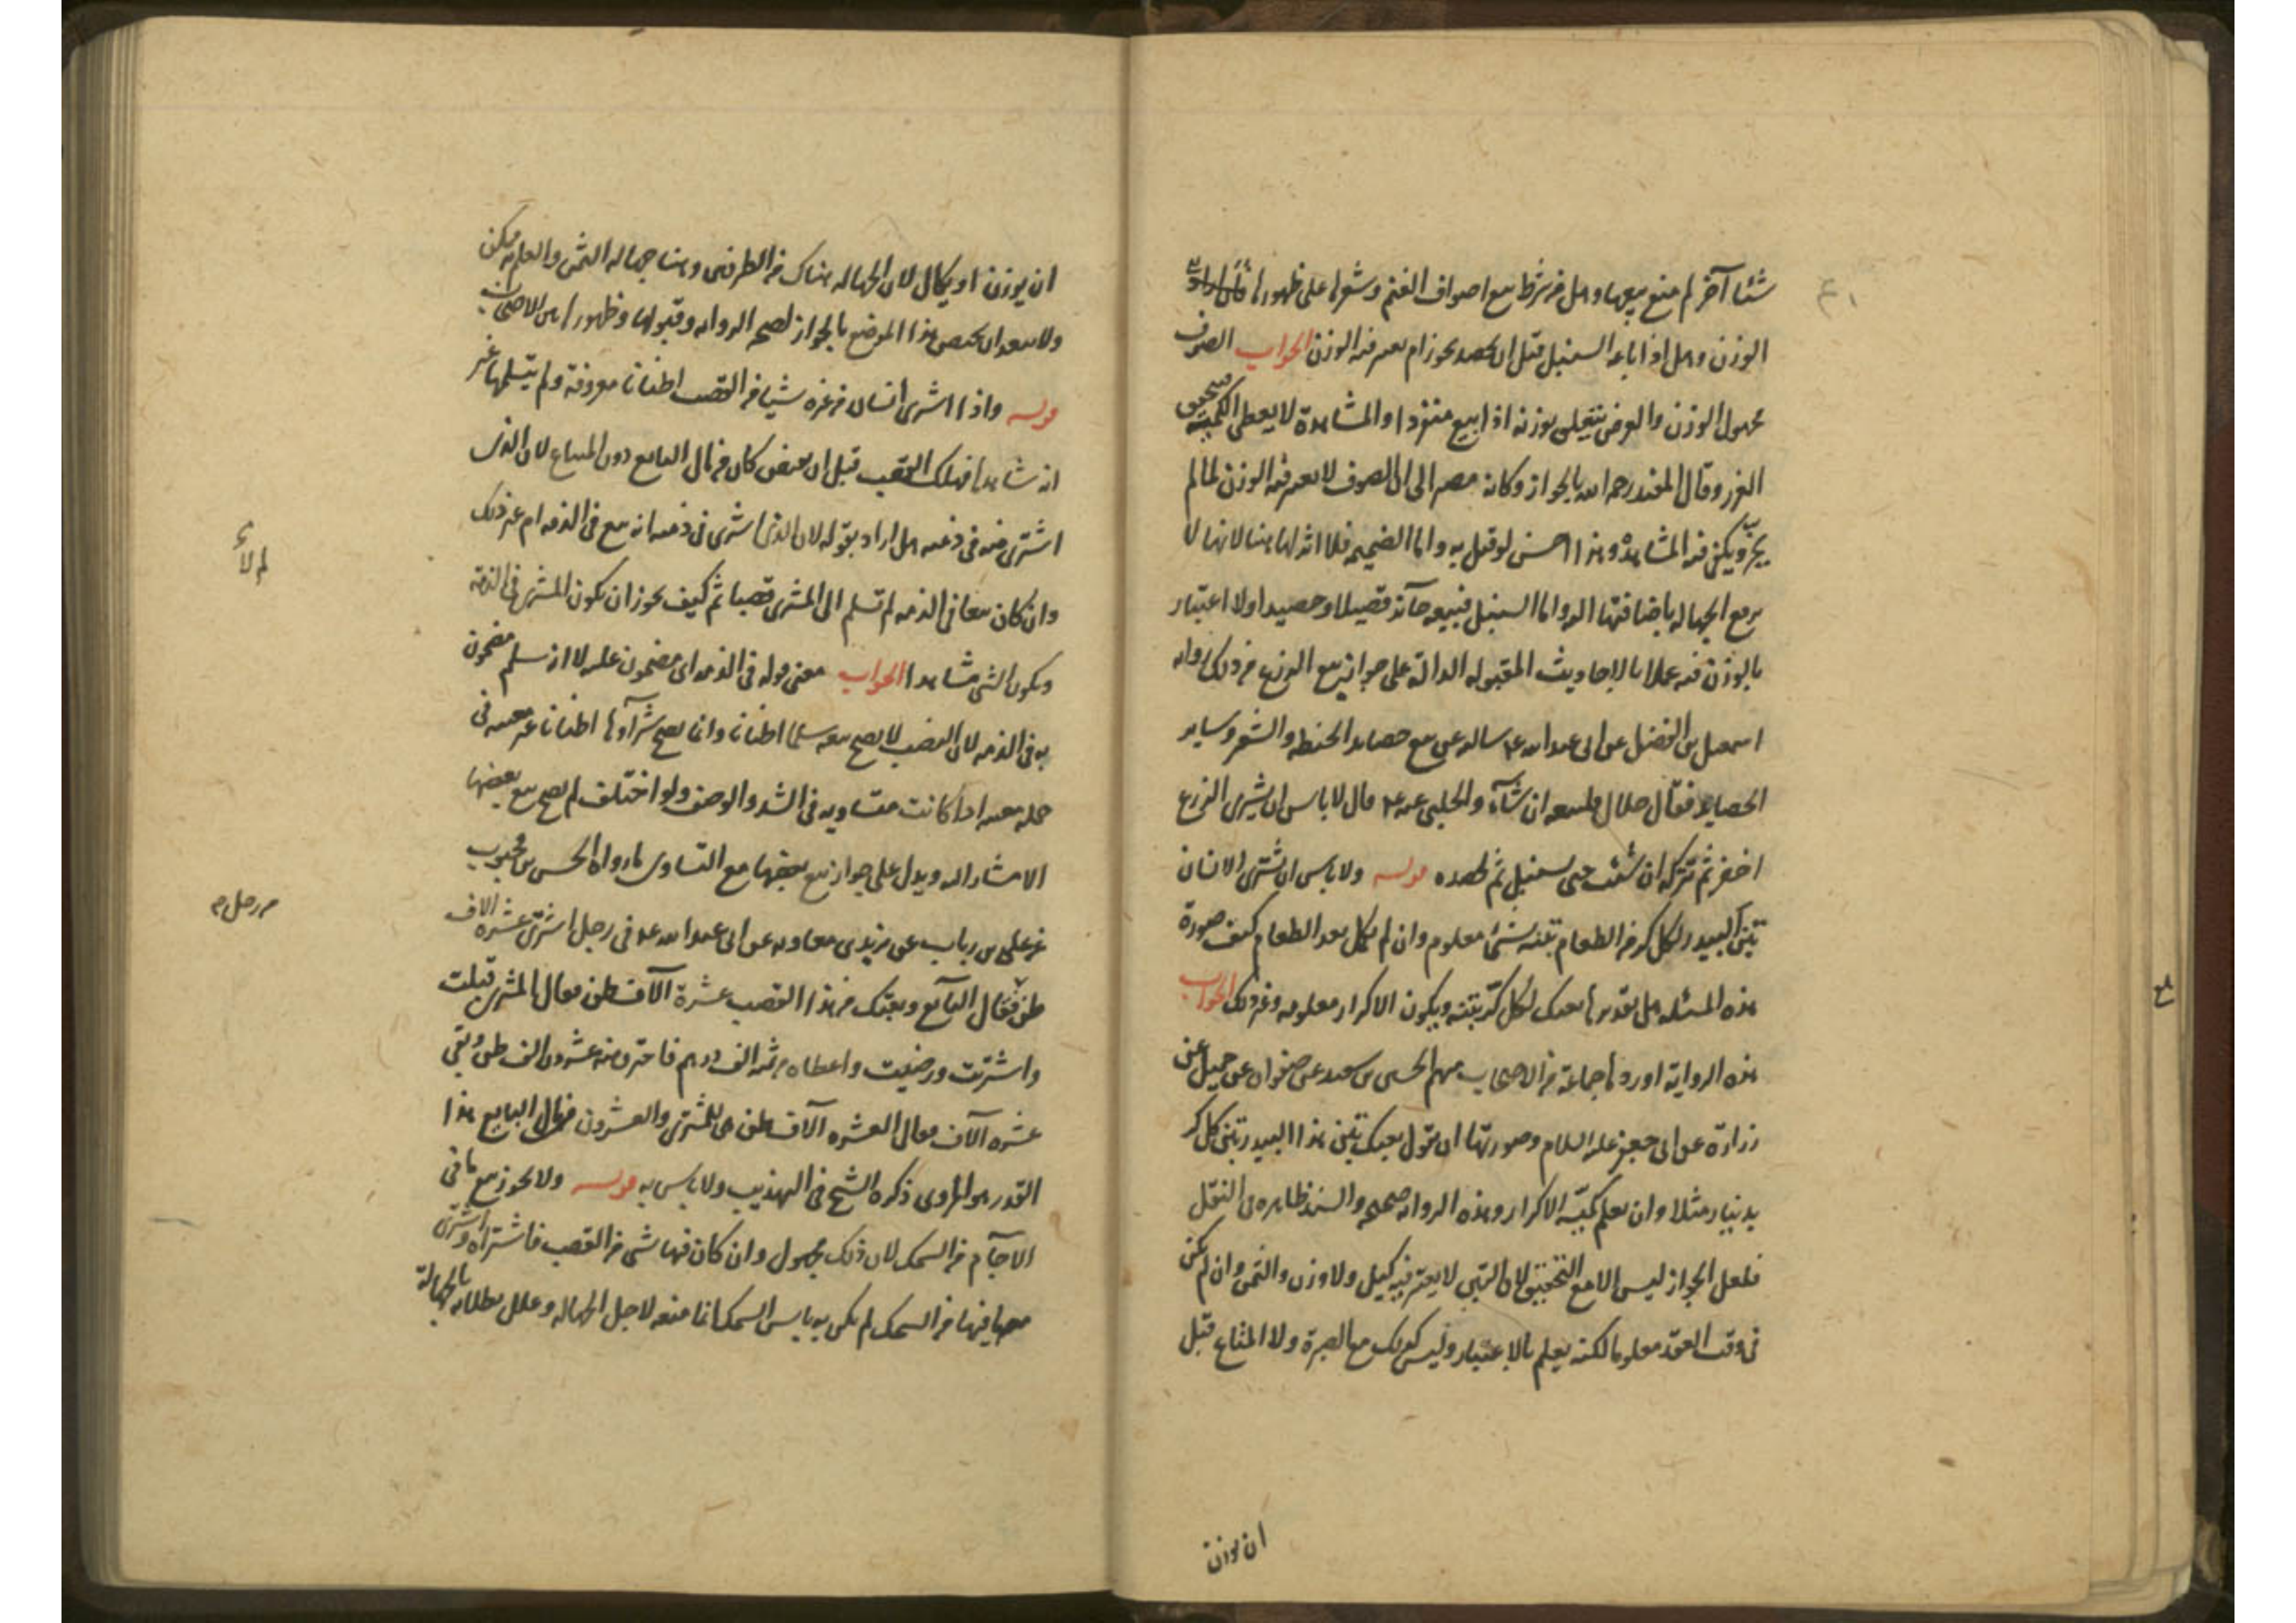 شئا آخر لم منع بيعها وهل من شرط بيع اصواف الغنم وشعرها على ظهورها
الوزن وهل اذا باعه السنبل قبل ان يحصد يجوز ام يعتبر فيه الوزن الجواب الصوف
مجهول الوزن والغرض يتعلق بوزنه اذا بيع منفردا والمشاهدة لا يعطى الكمية فيتحقق
الغرر وقال المفيد رحمه الله بالجواز وكانه مصير الى ان الصوف لا يعتبر فيه الوزن لما لم
يجز ويكفى فيه المشاهدة وهذا احسن لو قيل به واما الضميمه فلا اثر لها هنا لانها لا
يرفع الجهاله باضافتها اليه واما السنبل فبيعه جائز قصيلا وحصيدا ولا اعتبار
بالوزن فيه عملا بالاحاديث المقبوله الدالة على جواز بيع الزرع من ذلك رواه
اسمعيل بن الفضل عن ابى عبد الله ع سالته عن بيع حصايد الحنطه والشعير وساير
الحصايد فقال حلال فليبعه ان شاء والحلبى عنه ع قال لا باس ان يشترى الزرع
اخضر ثم تتركه ان شئت حتى يسنبل ثم تحصده قوله ولا باس ان يشترى الانسان
تبن البيدر لكل كر من الطعام تبنه بشئ معلوم وان لم يكل بعد الطعام كيف صورة
هذه المسئله هل تقديرها بعتك لكل كر تبنه ويكون الاكرار معلومه وغير ذلك الجواب
هذه الرواية اوردها جماعة من الاصحاب منهم الحسين بن سعيد عن صفوان عن جميل عن
زرارة عن ابى جعفر عليه السلام وصورتها ان تقول بعتك تبن هذا البيدر تبن كل كر
بدينار مثلا وان يعلم كمية الاكرار وهذه الروايه صحيحه والسند ظاهره فى النقل
فلعل الجواز ليس الا مع التحقيق لان التبن لا يعتبر فيه كيل ولا وزن والثمن وان لم يكن
فى وقت العقد معلوما لكنه يعلم بالاعتبار وليس كذلك مع الصبرة ولا المتاع قبل
ان يوزن
ان يوزن او يكال لان الجهاله هناك من الطرفين وهنا جهاله الثمن والعلم به ممكن
ولا يبعد ان يختص هذا الموضع بالجواز لصحه الروايه وقبولها وظهورها بين الاصحاب
قوله واذا اشترى انسان من غيره شيئا من القصب اطنانا معروفة ولم يتسلمها غير
انه شاهدها فهلك القصب قبل ان يقبض كان من مال البايع دون المبتاع لان الذى
اشترى منه فى ذمته هل اراد بقوله لان الذى اشترى فى ذمته انه بيع فى الذمه ام غير ذلك
وان كان بيعا فى الذمه لم تسلم الى المشترى قصبا ثم كيف يجوز ان يكون المشترى فى الذمة
ويكون الشى مشاهدا الجواب معنى قوله فى الذمه اى مضمون عليه لا انه سلم مضمون
به فى الذمه لان القصب لا يصح بيعه سلما اطنانا وانما يصح شرآوها اطنانا غير معينه فى
جمله معينه اذا كانت متساويه فى الشد والوصف ولو اختلف لم يصح بيع بعضها
الا مشاراليه ويدل على جواز بيع بعضها مع التساوى ما رواه الحسن بن محبوب
عن على بن رباب عن بريد بن معاويه عن ابى عبد الله ع فى رجل اشترى عشرة الاف
طن فقال البآيع وبعتك من هذا القصب عشرة آلاف طن فقال المشترى قبلت
واشتريت ورضيت واعطاه من ثمنه الف درهم فاحترق منه عشرون الف طن وبقى
عشره آلاف فقال العشره آلاف طن هى للمشترى والعشرون من مال البايع هذا
القدر هو المروى ذكره الشيخ فى التهذيب ولا باس به قوله ولا يجوز بيع ما فى
الآجام من السمك لان ذلك مجهول وان كان فيها شى من القصب فاشتراه واشترى
معه ما فيها من السمك لم يكن به باس السمك انما منعه لاجل الجهاله وعلل بطلانه بالجهالة
من رجل م